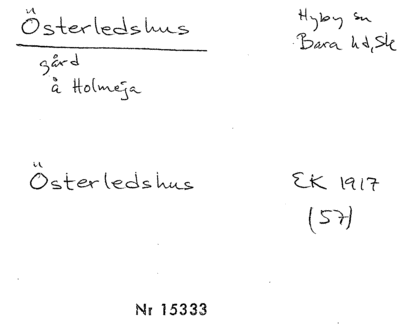 Österledshus
Hyby sn
Bara hd, Sk
gård
å Holmeja
Österledshus
EK 1917
(57)
Nr 15333